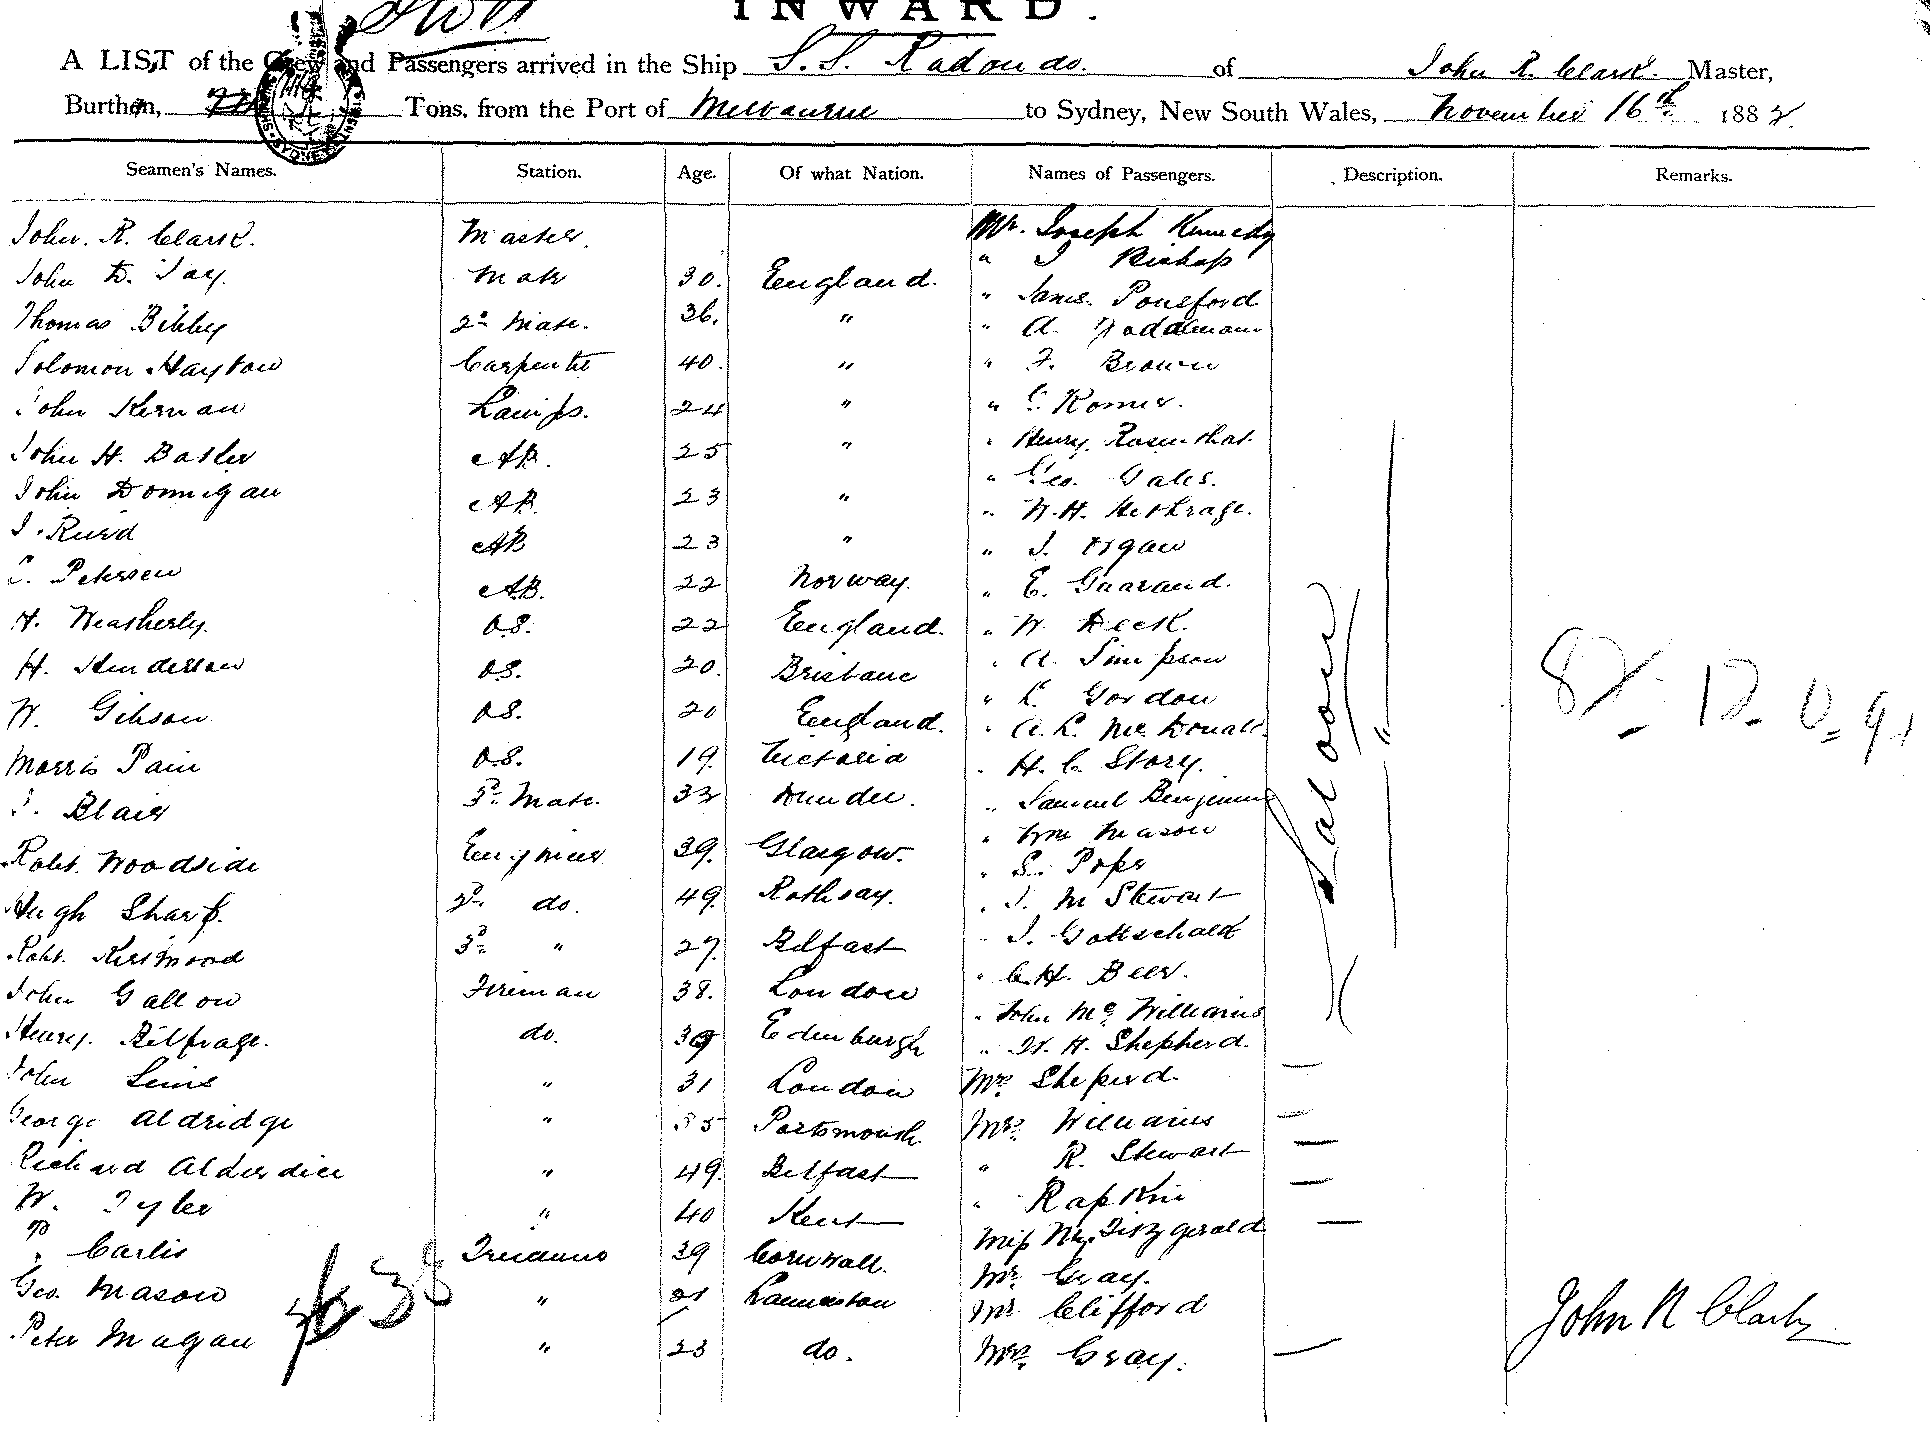 INWARD.
A LIST of the Crew and Passengers arrived in the Ship S. S. Rodondo. of John R. Clark. Master,
Burthen, Tons, from the Port of Melbourne to Sydney, New South Wales, November 16th 1882.
Seamen's Names. Station. Age. Of what Nation. Names of Passengers. Description. Remarks.
John. R. Clark. Master. Mr. Joseph Kennedy
John D. Tay. Mate 30. England. " J Bishop
Thomas Bibby 2nd Mate. 36. " " James Ponsford
" A.
Solomon Hayton Carpenter 40. " " F. Brown
John Kernan Lamps. 24 " " Romer.
John H. Basler AB. 25 " " Henry Rosenthal.
John Donnigan AB. 23 " " Geo. Gales.
" W. H. Hethrage.
J. Rued AB 23 " " J. Organ
Petersen AB. 22 Norway. " E. Gaarand.
H. Weatherly. OS. 22 England. " W Deck.
H. Henderson OS. 20. Brisbane " A. Simpson
W. Gibson OS. 20 England. " Gordon
" A. L. McDonald.
Morris Pain OS. 19. Victoria " H. C. Story.
Blair 3rd Mate. 33 Dundee. " Samuel Benjamin
" Wm Mason
Robt. Woodside Engineer 39. Glasgow. " S. Pope
Hugh Sharp. 2nd do. 49. Rothsay. " J. M Stewart
Robt. Kirkwood 3rd " 27. Belfast " J. Gottschalk
" C. H. Beer.
John Gallon Fireman 38. London " John McWilliams
Henry. Bilfrage. do. 39 Edinburgh " W. H. Shepherd.
Saloon
"
John Sims " 31 London Mrs. Sheperd. —
George Aldridge " 35 Portsmouth Mrs. Williams —
" R. Stewart —
Richard Alderdice " 49. Belfast " Rapkin —
W. Tyler " 40 Kent Miss Fitzgerald —
Carlis Trimmer 39 Cornwall. Mr. Gray.
Geo. Mason " Launceston Mr. Clifford
Peter Magan " 23 do. Mrs. Gray. —
John R Clark